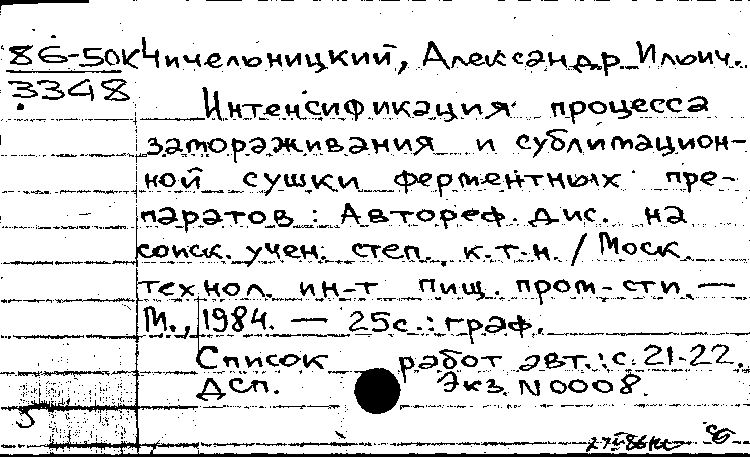 86-50к Чичельницкий, Александр Ильич.
3348
Интенсификация процесса
замораживания и сублимацион-
ной сушки ферментных пре-
паратов : Автореф. дис. на
соиск. учен. степ. к.т.н. / Моск.
технол. ин-т пищ. пром-сти. —
М., 1984. — 25с.: граф.
Список работ авт.: с. 21-22.
Дсп. Экз. N 0008.